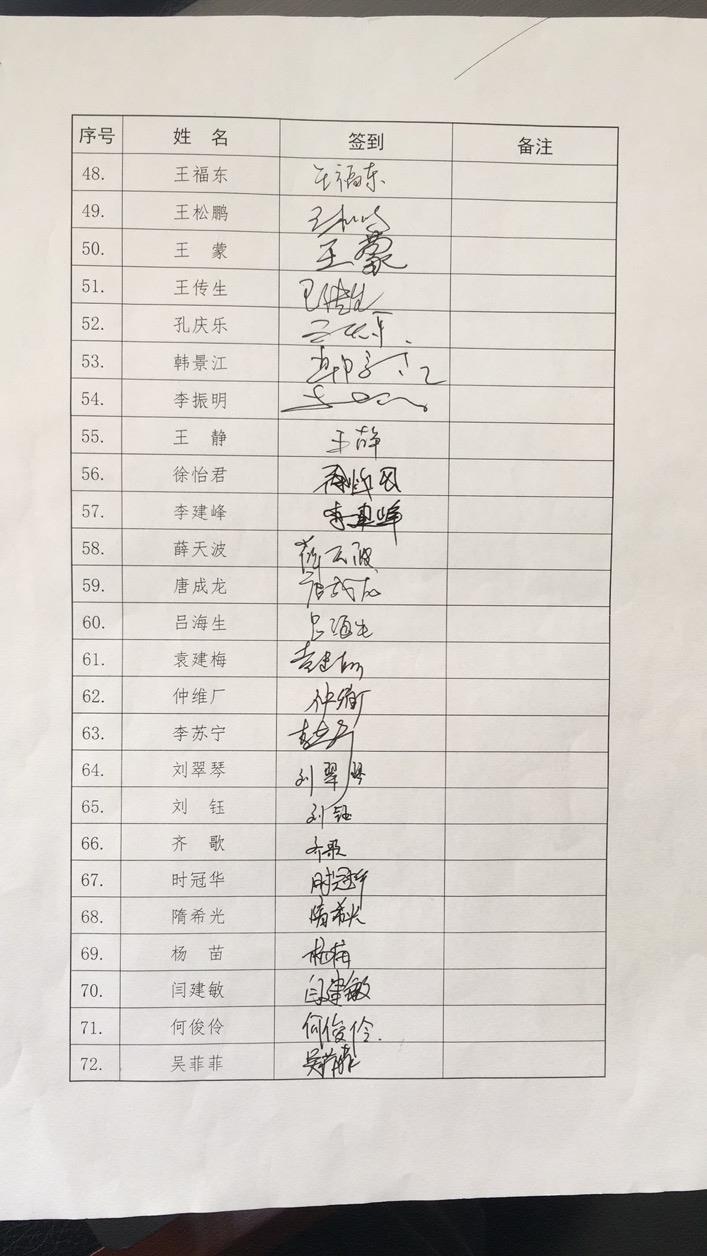 序号 姓 名 签到 备注
48. 王福东 王福东
49. 王松鹏
50. 王 蒙 王蒙
51. 王传生 王传生
52. 孔庆乐
53. 韩景江
54. 李振明
55. 王 静 王静
56. 徐怡君 徐怡君
57. 李建峰 李建峰
58. 薛天波 薛天波
59. 唐成龙 唐成龙
60. 吕海生 吕海生
61. 袁建梅 袁建梅
62. 仲维厂 仲维厂
63. 李苏宁
64. 刘翠琴 刘翠琴
65. 刘 钰 刘钰
66. 齐 歌 齐歌
67. 时冠华 时冠华
68. 隋希光 隋希光
69. 杨 苗
70. 闫建敏 闫建敏
71. 何俊伶 何俊伶.
72. 吴菲菲 吴菲菲